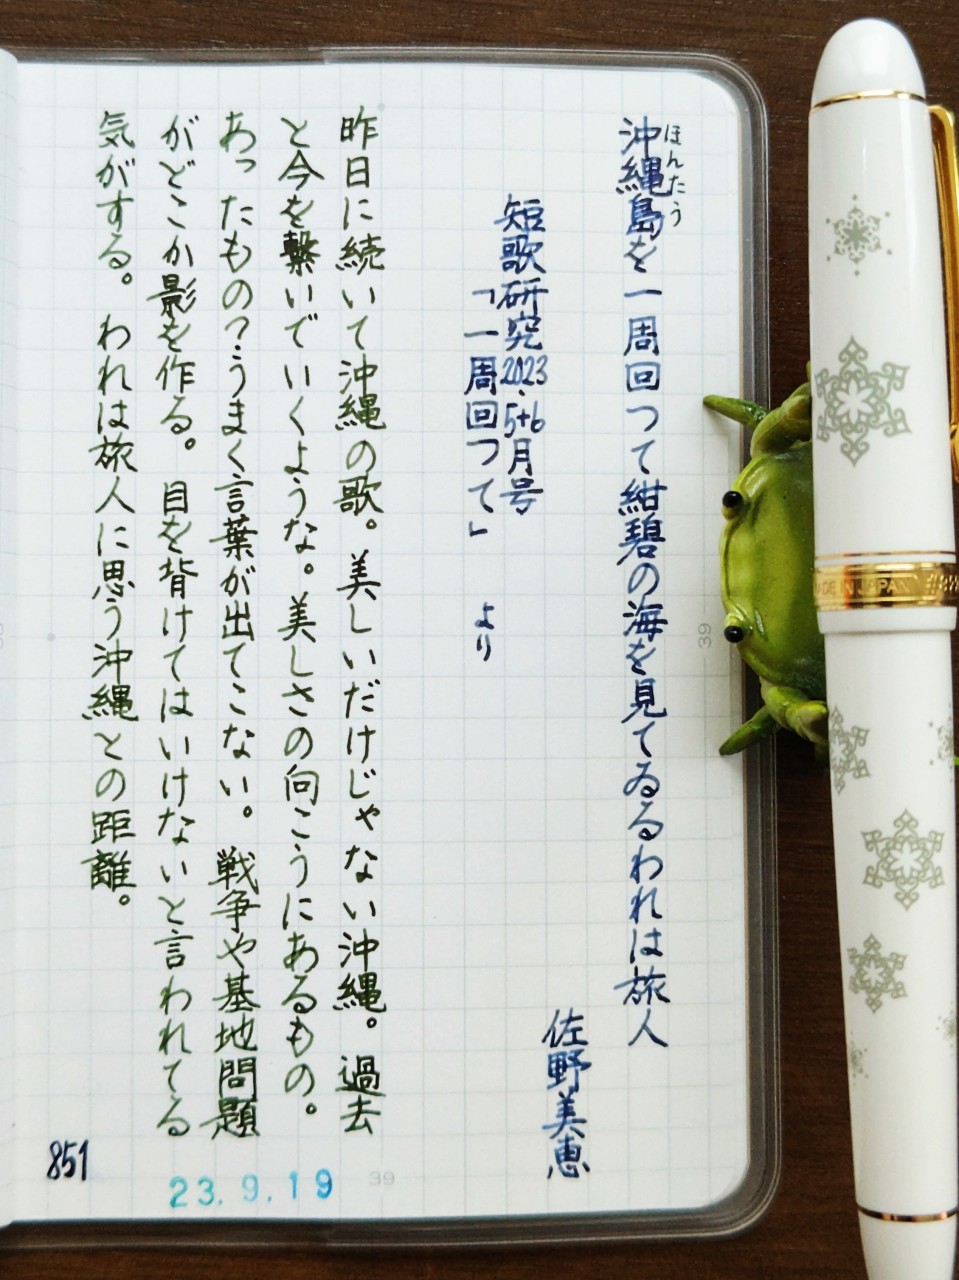 沖縄島を一周回つて紺碧の海を見てゐるわれは旅人
ほんたう
佐野美恵
短歌研究2023.5+6月号
「一周回つて」 より
昨日に続いて沖縄の歌。美しいだけじゃない沖縄。過去
と今を繋いでいくような。美しさの向こうにあるもの。
あったもの?うまく言葉が出てこない。戦争や基地問題
がどこか影を作る。目を背けてはいけないと言われてる
気がする。われは旅人に思う沖縄との距離。
851
23.9.19
39
39
MADE IN JAPAN